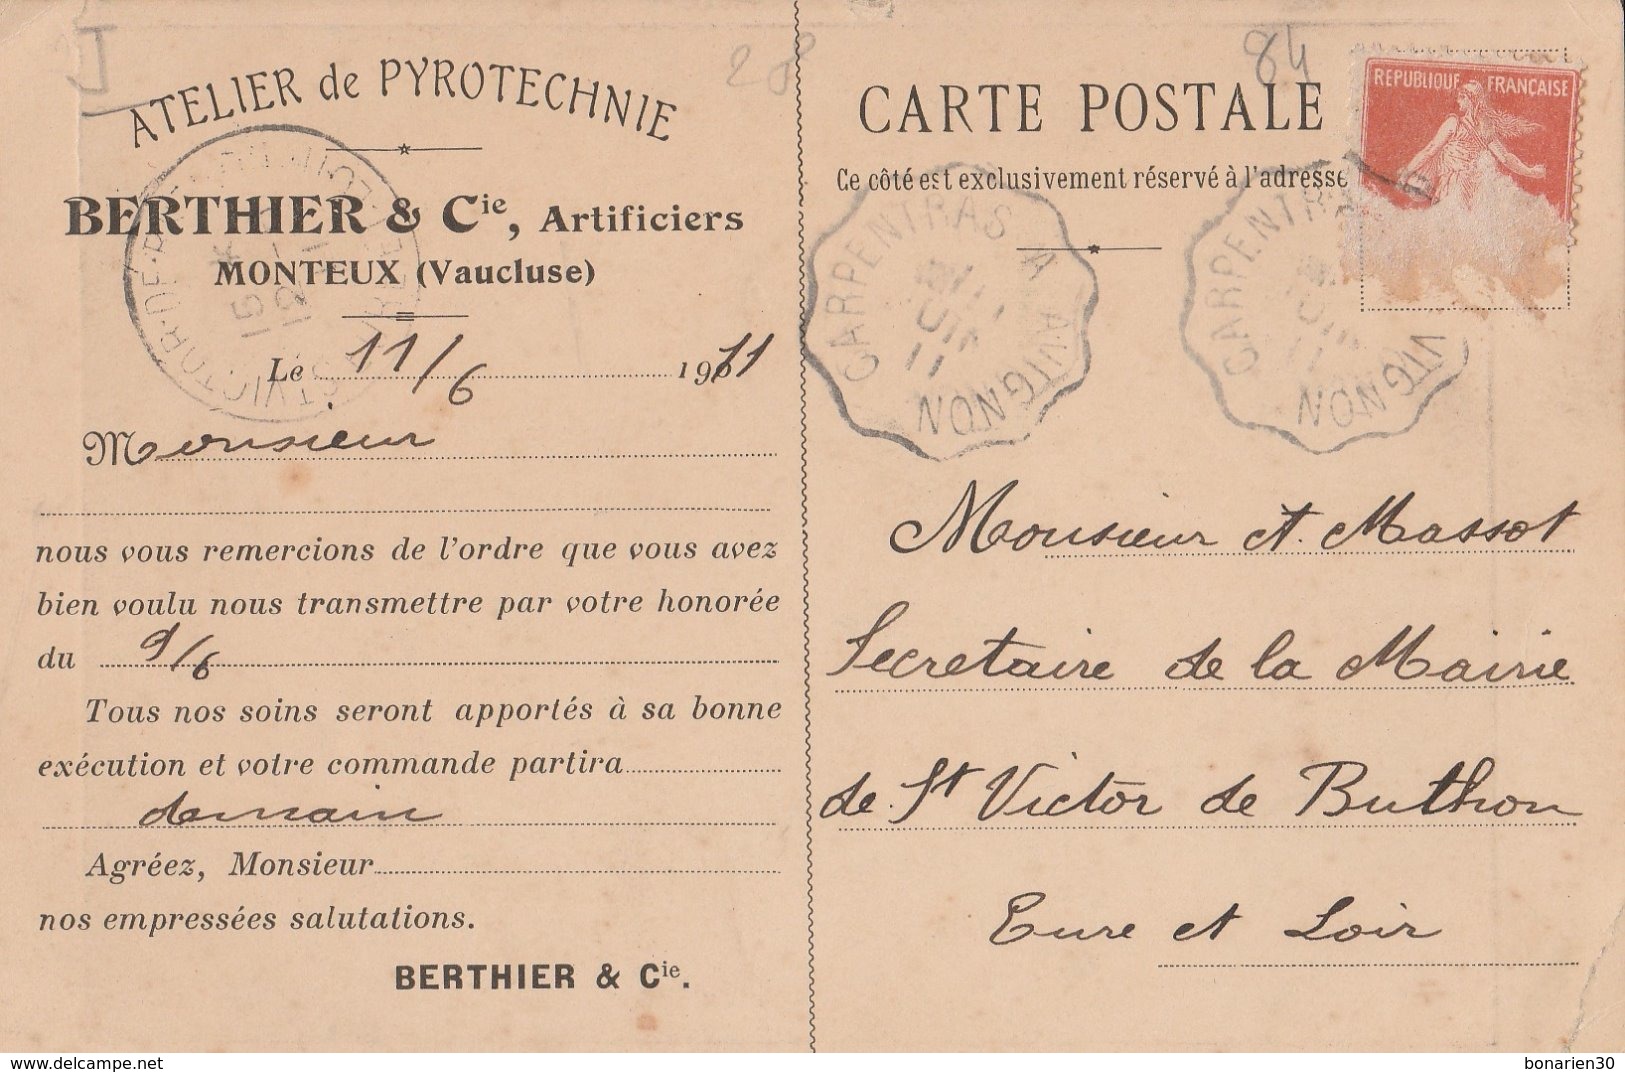 J
28
84
ATELIER de PYROTECHNIE
BERTHIER & Cie, Artificiers
MONTEUX (Vaucluse)
Le 11/6 1911
Monsieur
nous vous remercions de l'ordre que vous avez
bien voulu nous transmettre par votre honorée
du 9/6
Tous nos soins seront apportés à sa bonne
exécution et votre commande partira
demain
Agréez, Monsieur
nos empressées salutations.
BERTHIER & Cie.
CARTE POSTALE
Ce côté est exclusivement réservé à l'adresse
REPUBLIQUE FRANÇAISE
CARPENTRAS A AVIGNON
11
CARPENTRAS AVIGNON
Monsieur A. Massot
Secretaire de la Mairie
de St Victor de Buthon
Eure et Loir
www.delcampe.net
bonarien30